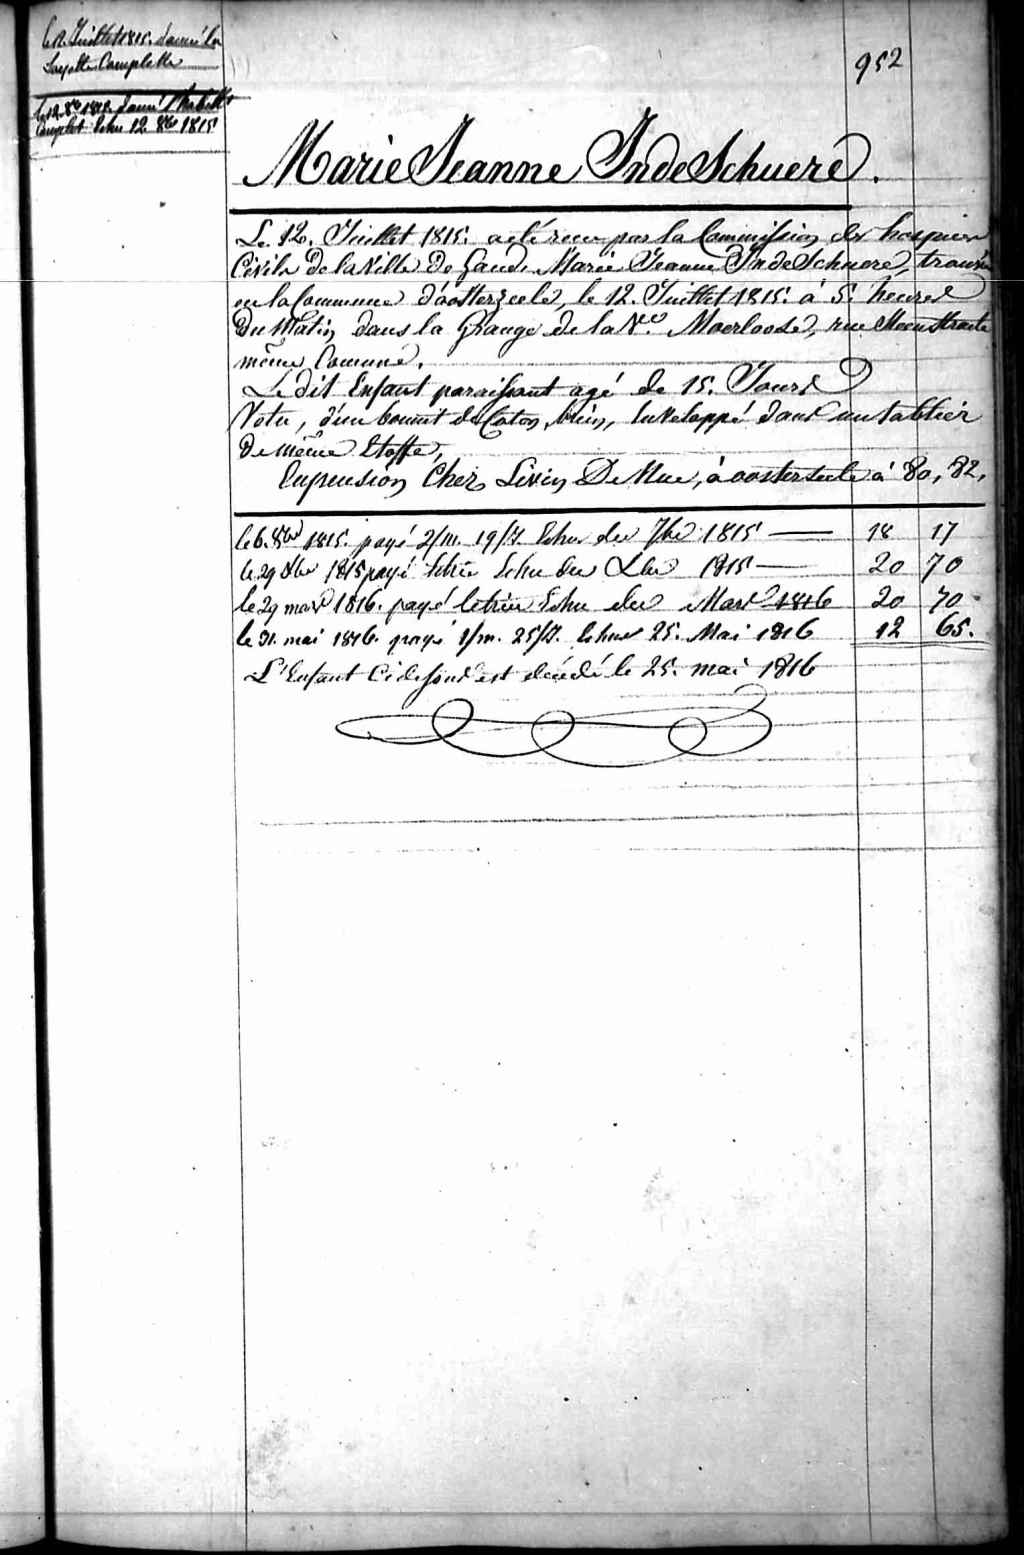 le 12. Juillet 1815. donné la
Layette Complette
le 12 8bre 1815 donné l'habillt
Complet Echu 12 8bre 1815
952
Marie Jeanne IndeSchuere.
Le 12. Juillet 1815. a été recu par la Commission des hospices
Civils de la Ville de Gand, Marie Jeanne IndeSchuere, trouvée
en la Commune d'oosterzeele, le 12. Juillet 1815. à 5. heures
du Matin, dans la Grange de la Ve. Moerloose, rue
même Comune.
Le dit Enfant paraissant agé de 15. Jours
Vetu, d'un bonnet de Coton, bleu, Enveloppé dans un tablier
de même Etoffe,
En pension, Chez Livin De Mue, à oosterzeele à 80, 82.
le 6. 8bre 1815. payé 2/m. 19/J. Echus du 7bre 1815 — 18 17
le 29 Xbre 1815 payé Echu du Xbre 1815 — 20 70
le 29 mars 1816. payé letrim Echu du Mars 1816 20 70
le 31. mai 1816. payé 1/m. 25/J. Echus 25. Mai 1816 12 65.
L'Enfant Cidessus est décédé le 25. mai 1816